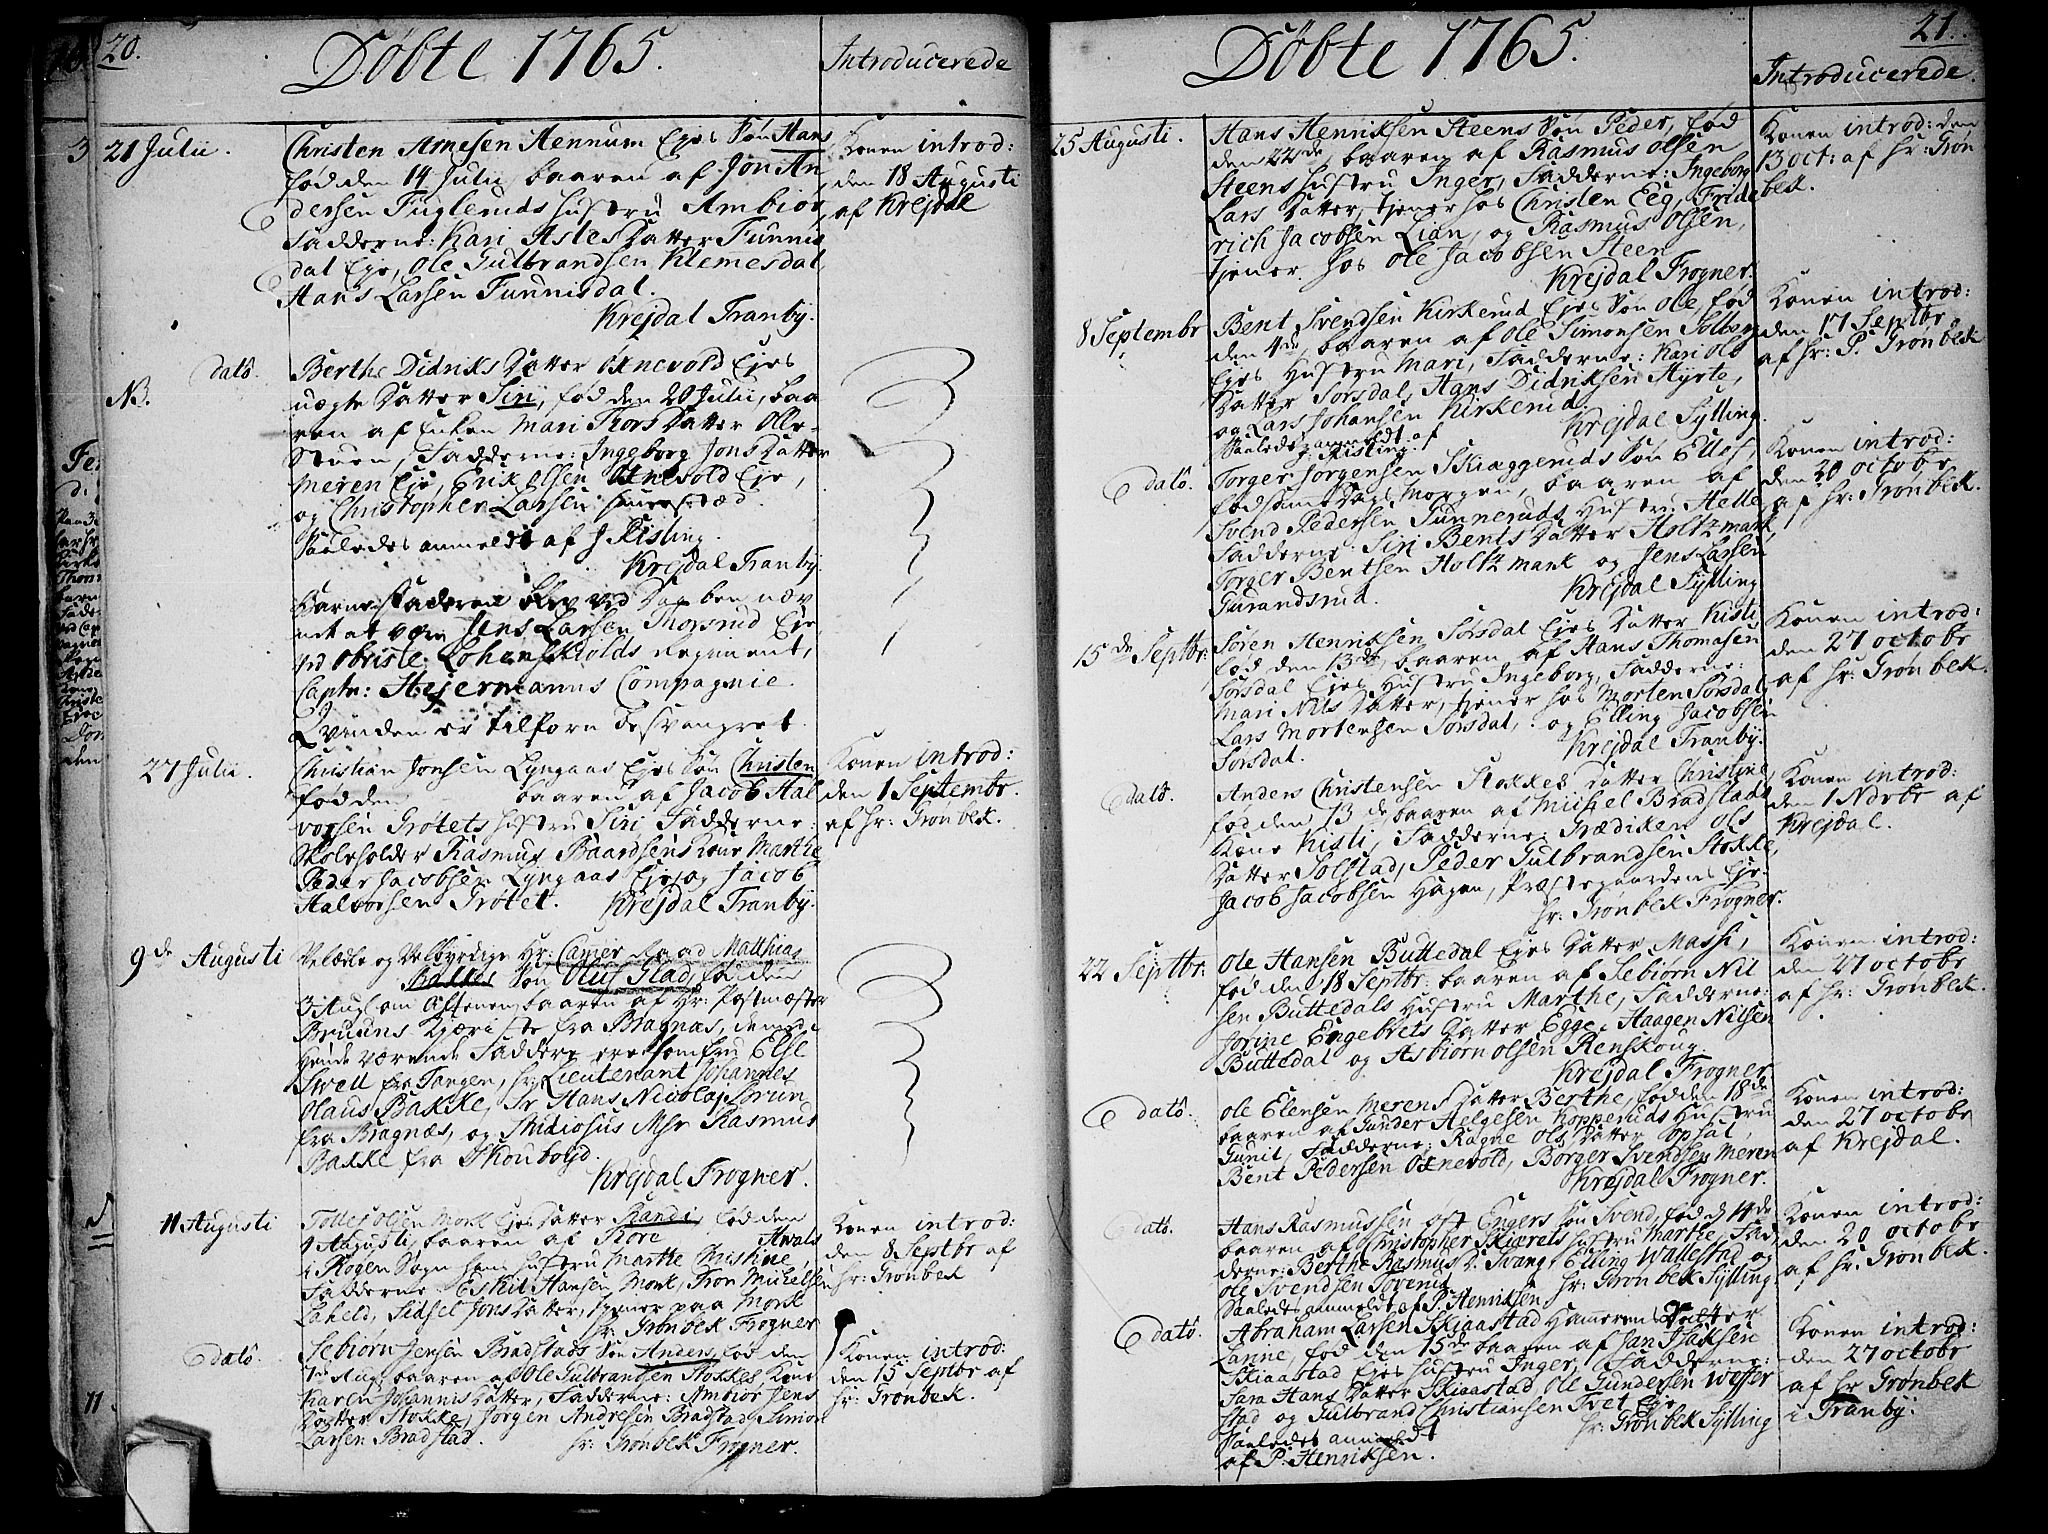 20.
Döbte 1765.
Introducerede
21 Julii.
Christen Arnesen Hennum Ejes Søn Hans
fød den 14 Julii baaren af Jon An
dersen Fugleruds Hustru Ambiør,
Fadderne: Kari Asles Datter Tunnis
dal Eje, Ole Gulbrandsen Klemesdal,
Hans Larsen Tunnisdal.
Krejdal Tranby.
Konen introd:
den 18 Augusti
af Krejdal
dato.
NB.
Berthe Didriks Datter Oxnevold Ejes
uægte Datter Siri, fød den 20 Julii, baa
ren af Enken Mari Thors Datter Olle
Stuen, Fadderne: Ingeborg Jons Datter
Meren Eje, Erik Olsen Oxnevold Eje,
og Christopher Larsen
Saaledes anmeldt af J. Risling.
Krejdal Tranby.
Barnefaderen blev ved Daaben næv
net at være Jens Larsen Thorsrud Eje,
ved Obriste Lohenskiolds Regiment,
Captn: Stejermanns Compagnie.
Qvinden er tilforn besvangret.
27 Julii.
Christian Jonsen Lyngaas Ejes Søn Christen
fød den baaren af Jacob Hal
vorsen Grøtets Hustru Siri, Fadderne:
Skoleholder Rasmus Baardsens Kone Marthe
Peder Jacobsen Lyngaas Eje og Jacob
Halvorsen Grøtet. Krejdal Tranby.
Konen introd:
den 1 Septembr.
af Hr: Grønbek.
9de Augusti
Velædle og Velbyrdige Hr: Camer Raad Matthias
Bakkes Søn Oluf Glad, fød den
3 Aug: om Aftenen, baaren af Hr: Postmester
Bruuns Kjæriste fra Bragnæs, de
hende værende Faddere ere Jomfru Else
Svell fra Tangen, Hr: Lieutenant Johannes
Olaus Bakke, Sr Hans Nicolaj Brun
fra Bragnæs, og Studiosus Msr Rasmus
Bakke fra Skouboyd.
Krejdal Frogner.
11 Augusti
Tollef Olsen Mork Ejes Datter Randi, fød den
4 Augusti, baaren af Tore Awals
i Skogen Sogn hans Hustru Marthe Christine,
Fadderne: Eskil Hansen Mork, Tron Michelsen
Laheld, Sidsel Jons Datter, tjener paa Mork
Hr: Grønbek Frogner
Konen introd:
den 8 Septbr af
Hr: Grønbek
dato.
Sebiørn Jensen Bradstads Søn Anders, fød den
7de Aug: baaren af Ole Gulbrandsen Stokkes Kone
Karen Johannis Datter, Fadderne: Ambiør Jens
Datter Stokke, Jørgen Andresen Bradstad, Simon
Larsen Bradstad. Hr: Grønbek Frogner.
Konen introd:
den 15 Septbr af
Hr: Grønbek.
21.
Döbte 1765.
Introducerede.
25 Augusti.
Hans Henriksen Steens Søn Peder, fød
den 22de, baaren af Rasmus Olsen
Steens Hustru Inger, Fadderne: Ingeborg
Lars Datter, tjener hos Christen Eeg, Fride
rich Jacobsen Lian, og Rasmus Olsen,
tjener hos Ole Jacobsen Steen
Krejdal Frogner.
Konen introd: den
13 Oct: af Hr: Grøn
bek.
8 Septembr
Bent Svendsen Kirkerud Ejes Søn Ole, fød
den 4de, baaren af Ole Simonsen Solberg
Ejes Hustru Mari, Fadderne: Kari Ols
Datter Sørsdal, Hans Didriksen Hyrte,
og Lars Johansen Kirkerud
Saaledes anmeldt af Risling. Krejdal Sylling.
Konen introd:
den 17 Septbr
af Hr: P. Grønbek
dato.
Torger Jørgensen Skiæggeruds Søn Ellef,
fød samme Dags Morgen, baaren af
Svend Pedersen Gunneruds Hustru Helle,
Fadderne: Siri Bents Datter Holtzmark,
Torger Bentsen Holtzmark og Jens Larsen
Gurandsrud. Krejdal Sylling
Konen introd:
den 20 Octobr
af Hr: Grønbek.
15de Septbr:
Søren Henriksen Sørsdal Ejes Datter Kisti
fød den 13de, baaren af Hans Thomasen
Sørsdal Ejes Hustru Ingeborg, Fadderne:
Mari Nils Datter, tjener hos Morten Sørsdal,
Lars Mortensen Sørsdal, og Elling Jacobsen
Sørsdal. Krejdal Tranby.
Konen introd:
den 27 Octobr
af Hr: Grønbek.
dato.
Anders Christensen Stokkes Datter Christine,
fød den 13de baaren af Michel Bradstads
Kone Kisti, Fadderne: Grædiken Ols
Datter Solstad, Peder Gulbrandsen Stokke,
Jacob Jacobsen Hagen, Præstegaardens Eje.
Hr: Grønbek Frogner.
Konen introd:
den 1 Novbr af
Krejdal.
22 Septbr:
Ole Hansen Buttedal Ejes Datter Massi,
fød den 18 Septbr: baaren af Sebiørn Nil
sen Buttedals Hustru Marthe, Fadderne:
Jorine Engebrets Datter Egge, Haagen Nilsen
Buttedal og Asbiørn Olsen Renskoug.
Krejdal Frogner
Konen introd:
den 27 Octobr
af Hr: Grønbek.
dato.
Ole Elensen Merens Datter Berthe, fød den 18de
baaren af Gunder Helgesen Kopperuds Hustru
Gunil, Fadderne: Ragne Ols Datter Opsal,
Bent Pedersen Oxnevold, Børger Svendsen Meren
Krejdal Frogner.
Konen introd:
den 27 Octobr
af Krejdal.
dato.
Hans Rasmussen Øst Engers Søn Svend, fød d 14de
baaren af Christopher Skiærets Hustru Marthe, Fad
derne: Berthe Rasmus D. Svang, Elling Wallestad og
Ole Svendsen Hr: Grønbek Sylling
Saaledes anmeldt af P. Henriksen
Konen introd:
den 20 Octobr
af Hr: Grønbek.
dato.
Abraham Larsen Skiaastad Hammerens Datter
Lanine, fød den 15de baaren af Jan Isaksen
Skiaastad Ejes Hustru Inger, Fadderne:
Sara Hans Datter Skiaastad, Ole Gundersen Weffer
stad og Gulbrand Christiansen Tvet Eje
Hr: Grønbek Sylling
Saaledes anmeldt
af P. Henriksen.
Konen introd:
den 27 Octobr
af Hr Grønbek
i Tranby.